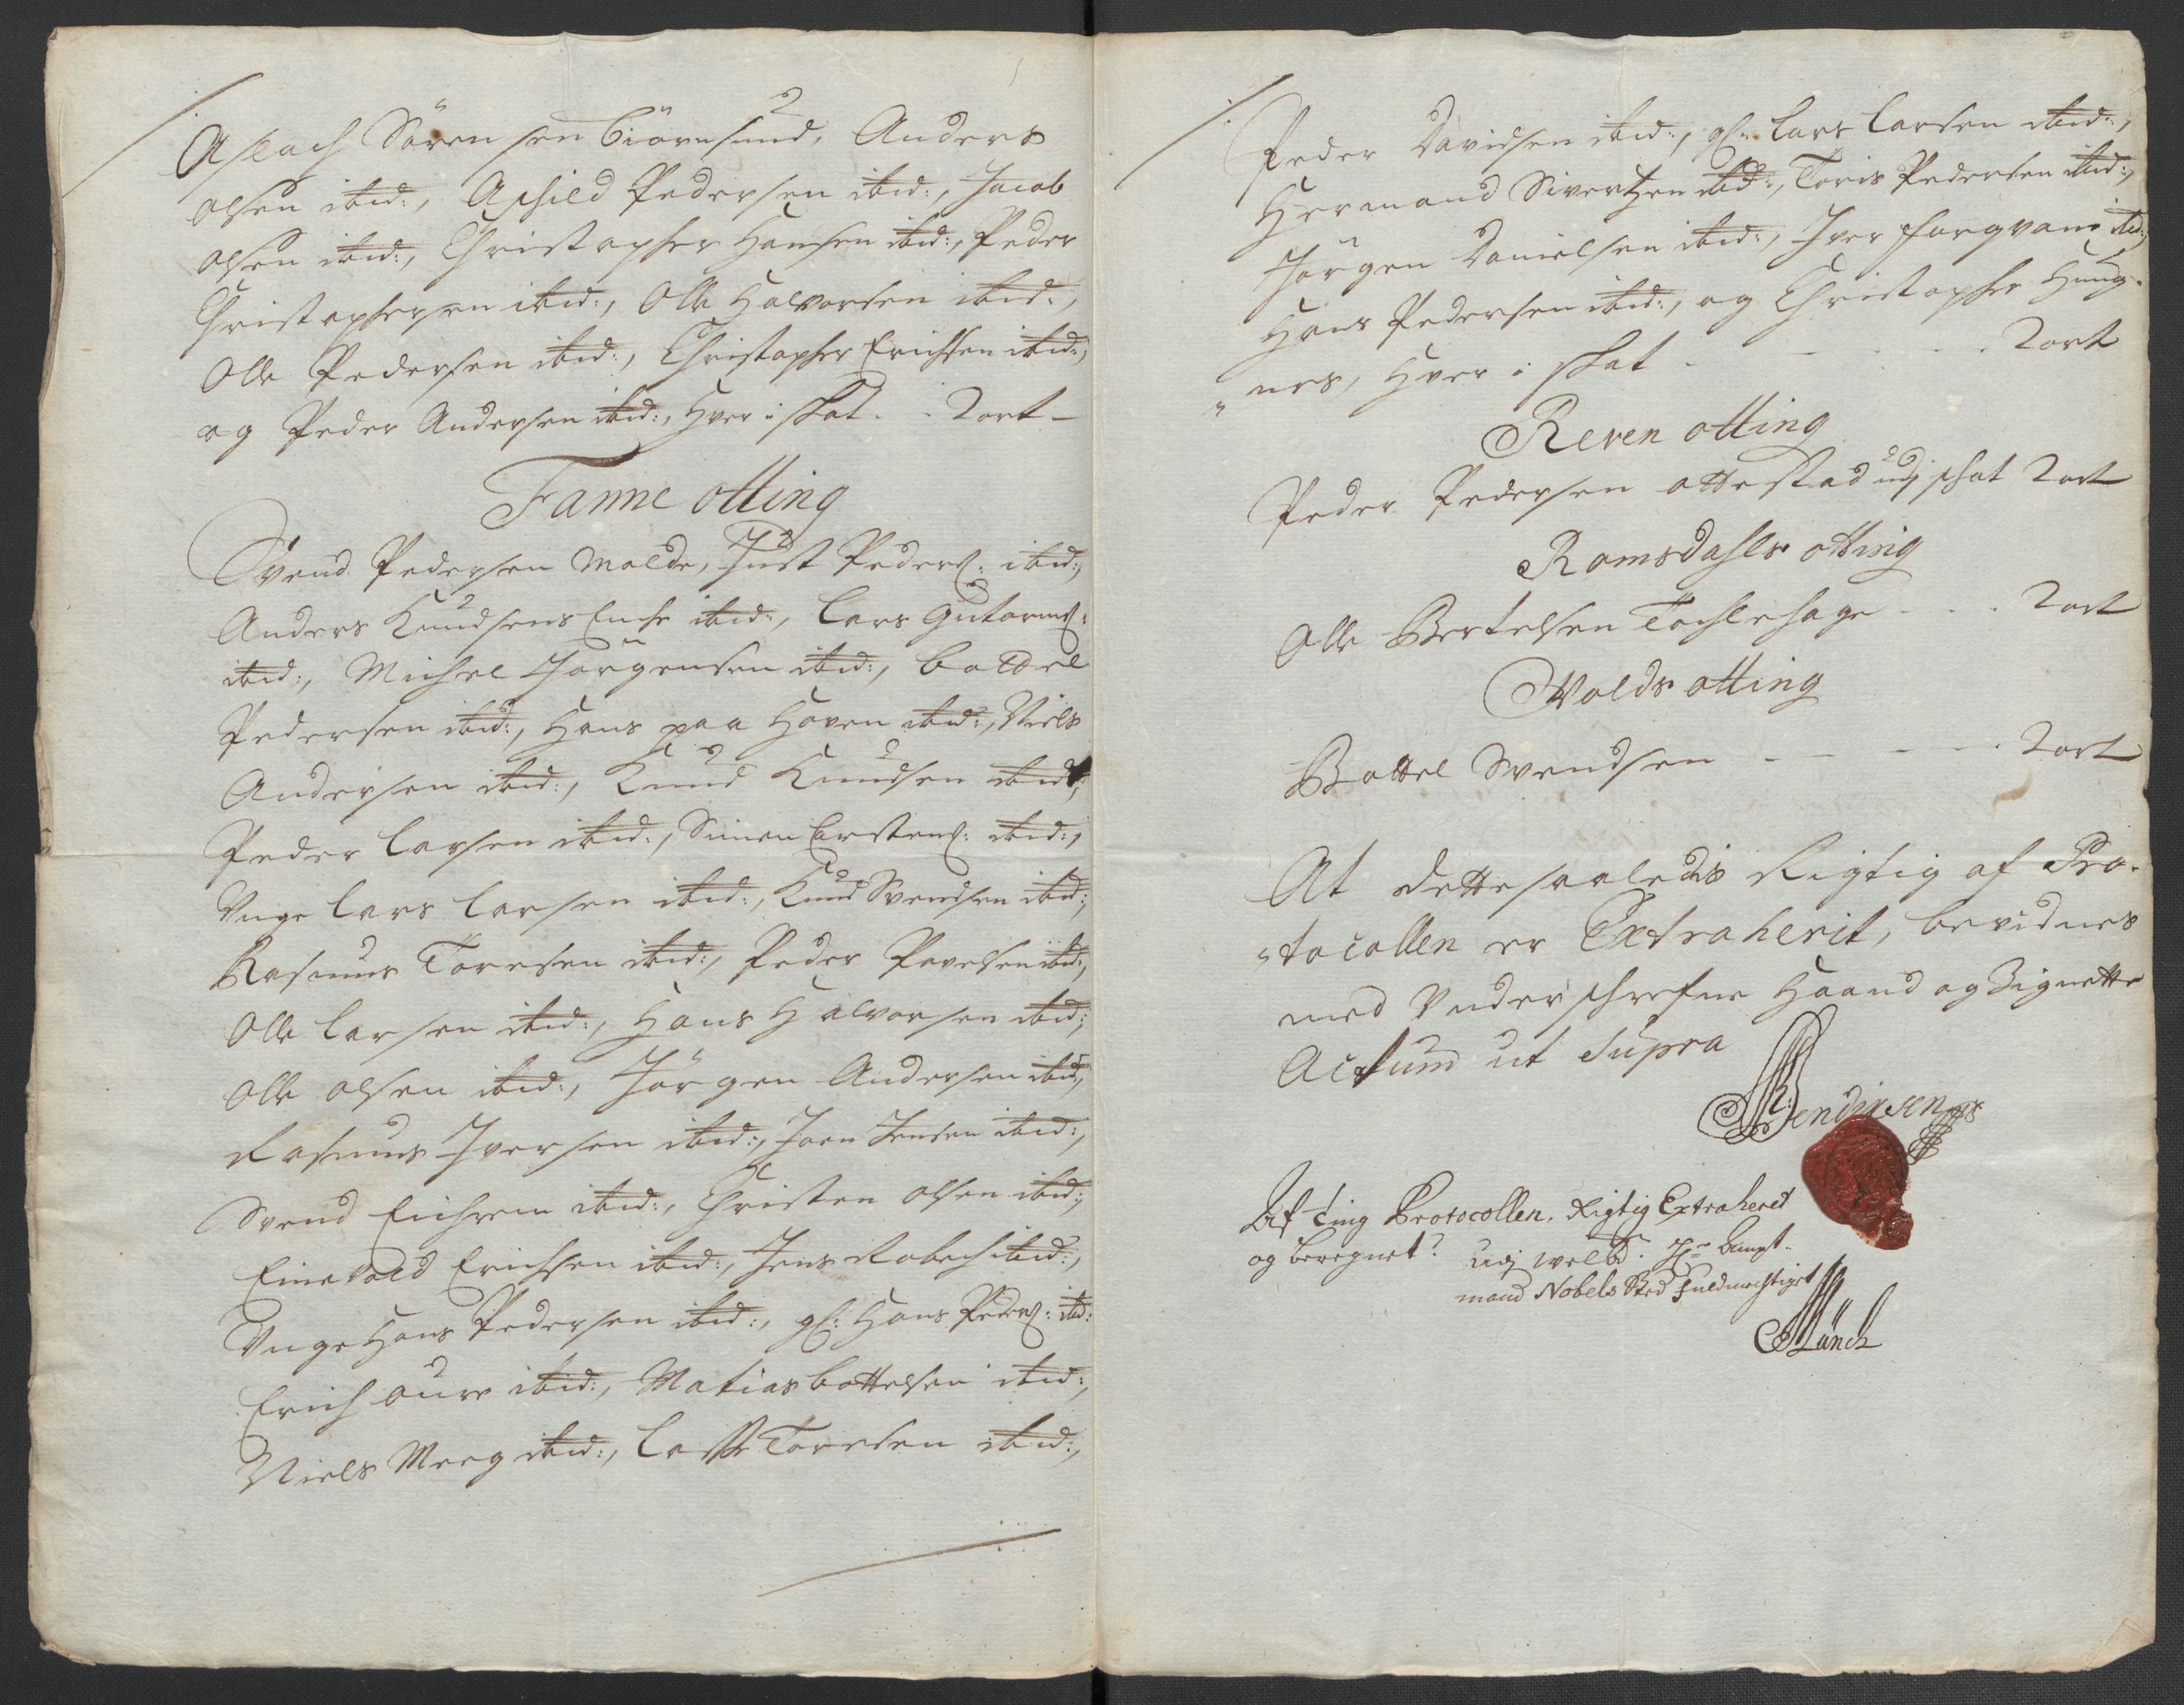 Aslach Sörensen Biörnsund, Anders
olsen ibid:, Aschild Pedersen ibid:, Jacob
olsen ibid:, Christopher Hansen ibid:, Peder
Christophersen ibid:, Olle Halvorsen ibid:,
Olle Pedersen ibid:, Christopher Erichsen ibid:,
og Peder Andersen ibid:, Hver i skat - 2 ort -
Fanne otting
Svend Pedersen Molde, Just Peders: ibid:,
Anders Knudsens Enche ibid:, Lars Gutorms:
ibid:, Michel Jörgensen ibid:, Bottel
Pedersen ibid:, Hans paa Hoven ibid:, Niels
Andersen ibid:, Knud Knudsen ibid:,
Peder Larsen ibid:, Simen Carstens: ibid:,
Unge Lars Larsen ibid:, Knud Svendsen ibid:,
Rasmus Toresen ibid:, Peder Povelsen ibid:,
Olle Larsen ibid:, Hans Halvorsen ibid:,
Olle olsen ibid:, Jörgen Andersen ibid:,
Rasmus Iversen ibid:, Joen Jensen ibid:,
Svend Eichrem ibid:, Christen olsen ibid:,
Einevold Erichsen ibid:, Jens Robech ibid:,
Unge Hans Pedersen ibid:, gl: Hans Peders: ibid:
Erich oure ibid:, Matias Bottelsen ibid:,
Niels Meeg ibid:, Lasse Toresen ibid:,
Peder Davidsen ibid:, gl: Lars Larsen ibid:,
Hermand Sivertzen ibid:, Toris Pedersen ibid:,
Jörgen Danielsen ibid:, Iver ibid:,
Hans Pedersen ibid:, og Christopher Hung-
nes, Hver i skat - - - - 2 ort
Reven otting
Peder Pedersen ottestad udj schat 2 ort
Romsdahls otting
Olle Bertelsen Tochlehage - - - 2 ort
Wolds otting
Bottel Svendsen - - - - 2 ort
At dette saaledis Rigtig af Pro-
tocollen er Extraherit, bevidnes
med Underschrefne Haand og Zignette
Actum ut Supra
Hendrichsen
Af Ting Protocollen. Rigtig Extraheret
og beregnet? udj welbr: Hr: Ampt-
mand Nobels Sted Fuldmechtiget
Münch